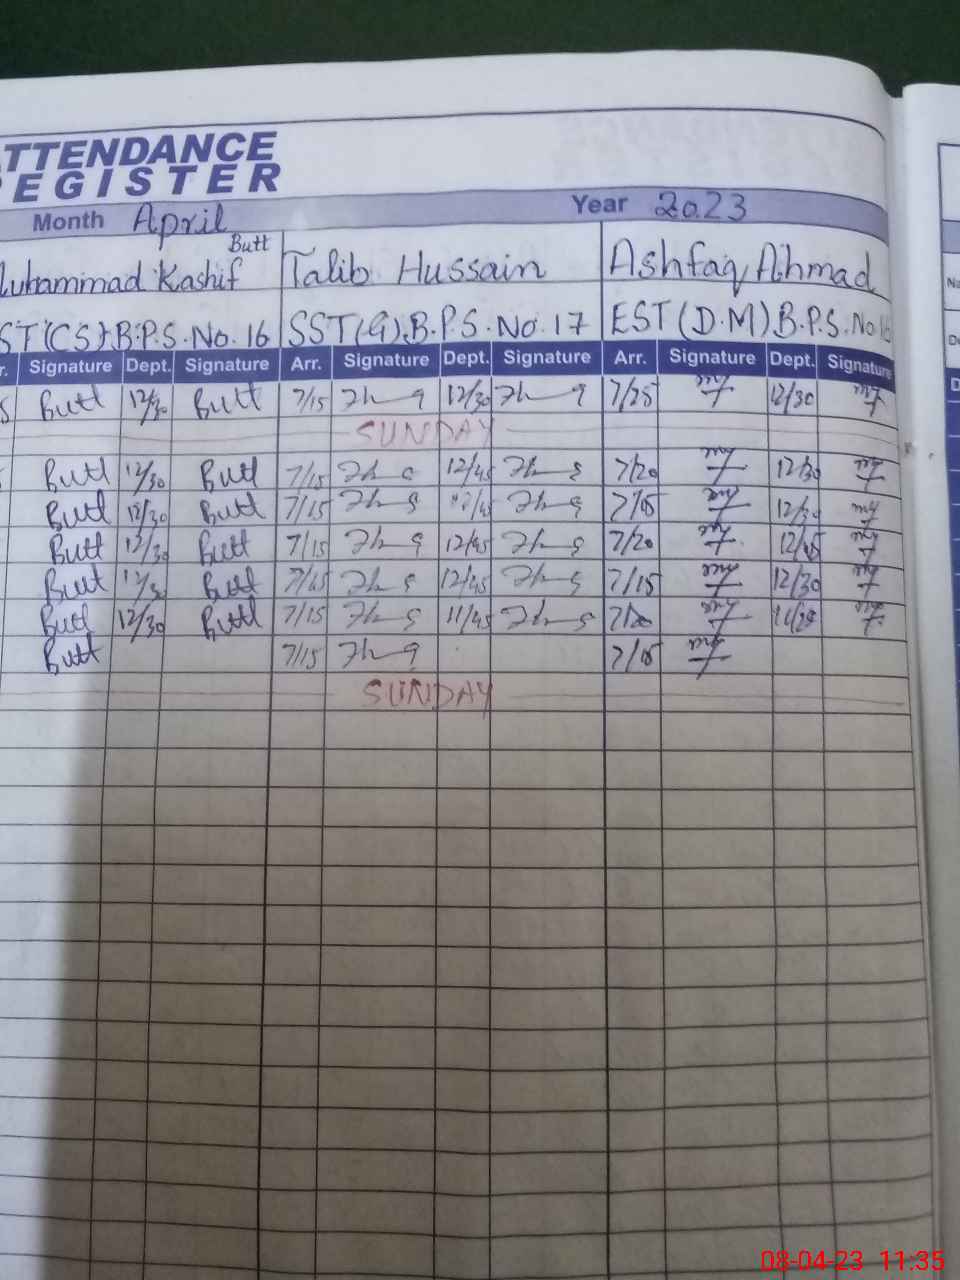 ATTENDANCE
REGISTER
Month April Year 2023
Butt
Muhammad Kashif Talib Hussain Ashfaq Ahmad
ST(CS).B.P.S.No.16 SST(G).B.P.S.No.17 EST(D.M)B.P.S.No.16
Signature Dept. Signature Arr. Signature Dept. Signature Arr. Signature Dept. Signature
Butt 12/30 Butt 7/15 12/30 7/25 12/30
SUNDAY
Butt 12/30 Butt 7/15 12/45 7/20 12/30
Butt 12/30 Butt 7/15 7/15 12/30
Butt 12/30 Butt 7/15 12/45 7/20
Butt Butt 7/15 12/45 7/15 12/30
Butt 12/30 Butt 7/15 11/45 7/20
Butt 7/15 7/15
SUNDAY
08-04-23 11:35